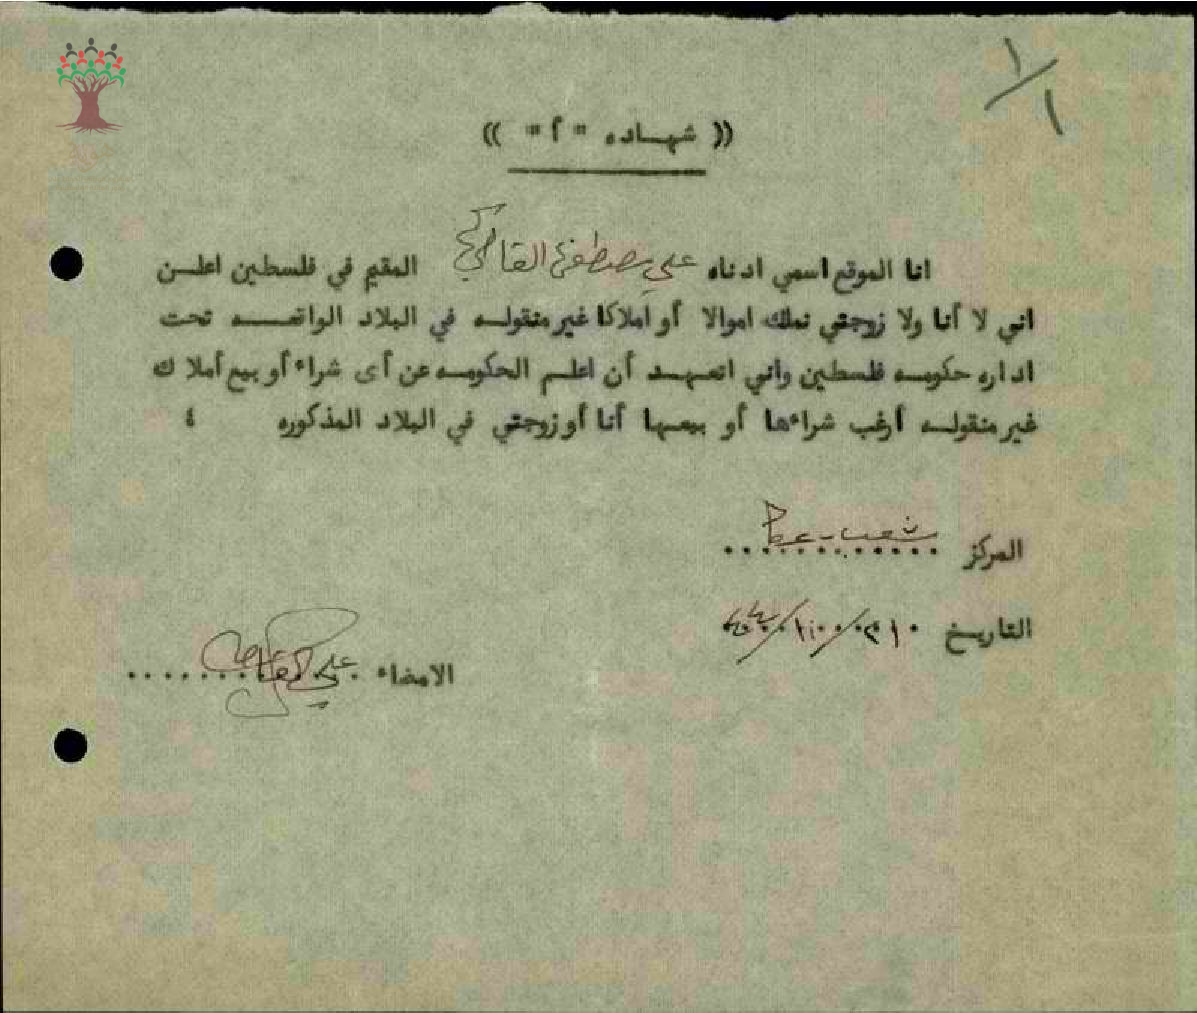 ١/١
(( شهـاده " أ " ))
انا الموقع اسمي ادناه علي مصطفى القاضي المقيم في فلسطين اعلـن
اني لا أنا ولا زوجتي نملك اموالا أو أملاكا غير منقولـه في البلاد الواقعـــه تحت
اداره حكومـه فلسطين واني اتعهـد أن اعلـم الحكومـه عن أى شراء أو بيع أملاك
غير منقولـه أرغب شراءها أو بيعـها أنا أو زوجتي في البلاد المذكوره ٤
المركز شعب - عكا
التاريـخ
الامضاء علي